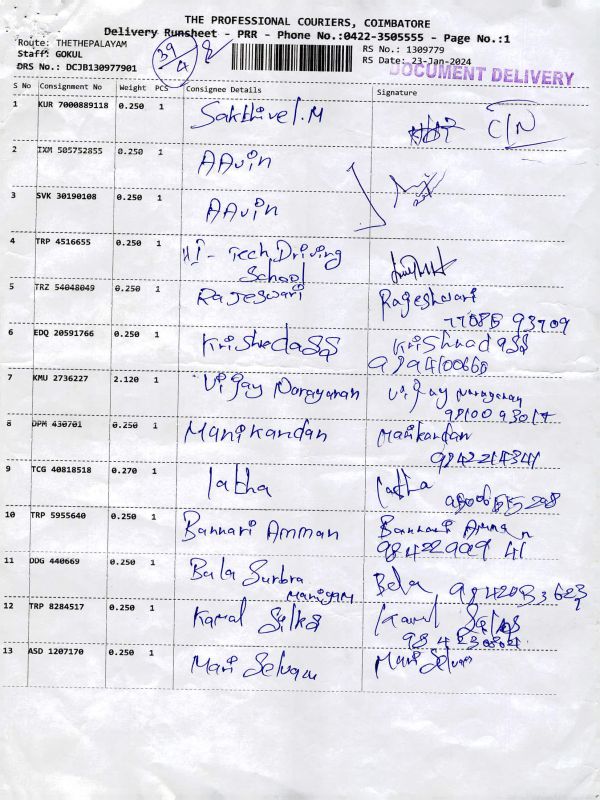 THE PROFESSIONAL COURIERS, COIMBATORE
Delivery Runsheet - PRR - Phone No.:0422-3505555 - Page No.:1
Route: THETHEPALAYAM
RS No.: 1309779
Staff: GOKUL
39/4
RS Date: 23-Jan-2024
DRS No.: DCJB130977901
DOCUMENT DELIVERY
S No Consignment No Weight PCS Consignee Details Signature
1 KUR 7000889118 0.250 1 Sakthivel.M C/N
2 IXM 505752855 0.250 1 AAvin
3 SVK 30190108 0.250 1 AAvin
4 TRP 4516655 0.250 1 HI-Tech Driving
School
5 TRZ 54048049 0.250 1 Rajeswari Rageshwari
77085 93709
6 EDQ 20591766 0.250 1 Krishnadass
9894100666
7 KMU 2736227 2.120 1 Vijay Narayanan Vijay Narayanan
8 DPM 430701 0.250 1 Manikandan Manikandan
9842214341
9 TCG 40818518 0.270 1 latha Latha
10 TRP 5955640 0.250 1 Bannari Amman Bannari Amman
9842290941
11 DDG 440669 0.250 1 Bala Bala
12 TRP 8284517 0.250 1 Kamal Silks Kamal Silks
13 ASD 1207170 0.250 1 Mari Selvam Mari Selvam